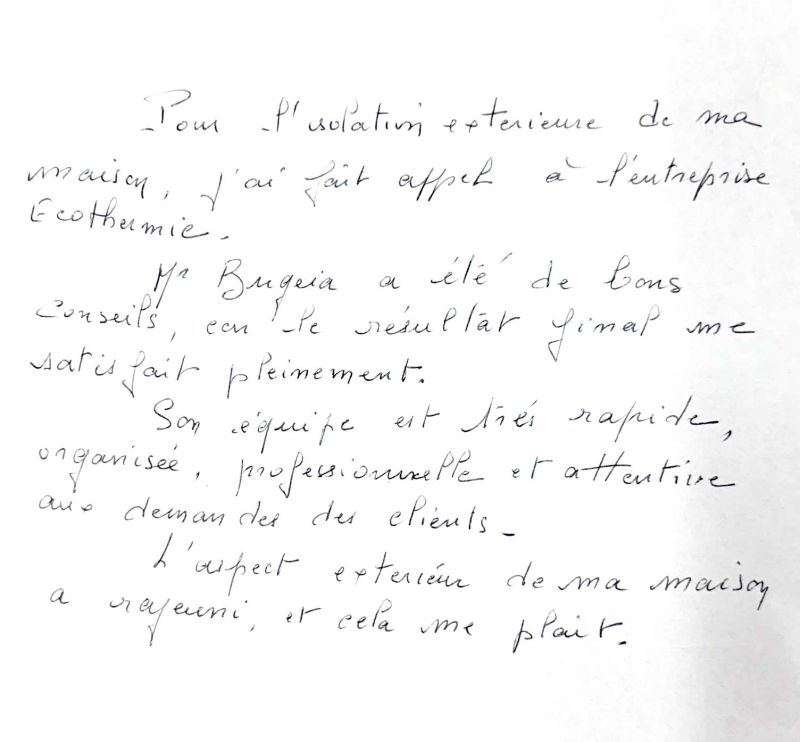 Pour l'isolation exterieure de ma
maison, j'ai fait appel à l'entreprise
Ecothermie.
Mr Bugeia a été de bons
conseils, car le résultat final me
satisfait pleinement.
Son équipe est très rapide,
organisée, professionnelle et attentive
aux demandes des clients.
L'aspect exterieur de ma maison
a rajeuni, et cela me plait.